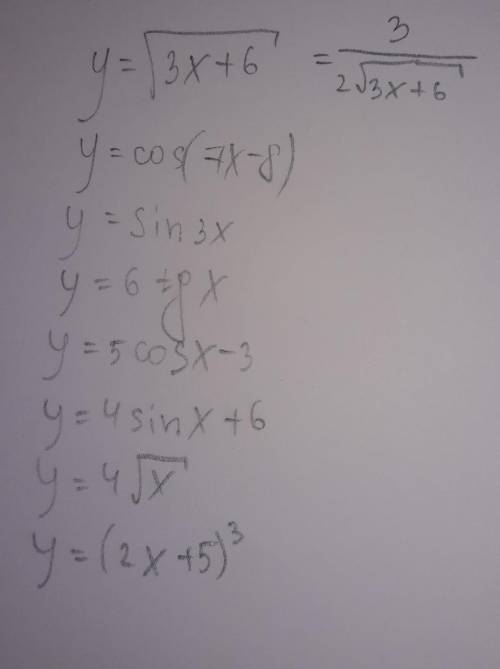 y = √(3x+6) = 3/(2√(3x+6))
y = cos(7x-8)
y = sin 3x
y = 6 tg x
y = 5 cos x - 3
y = 4 sin x + 6
y = 4√x
y = (2x+5)³